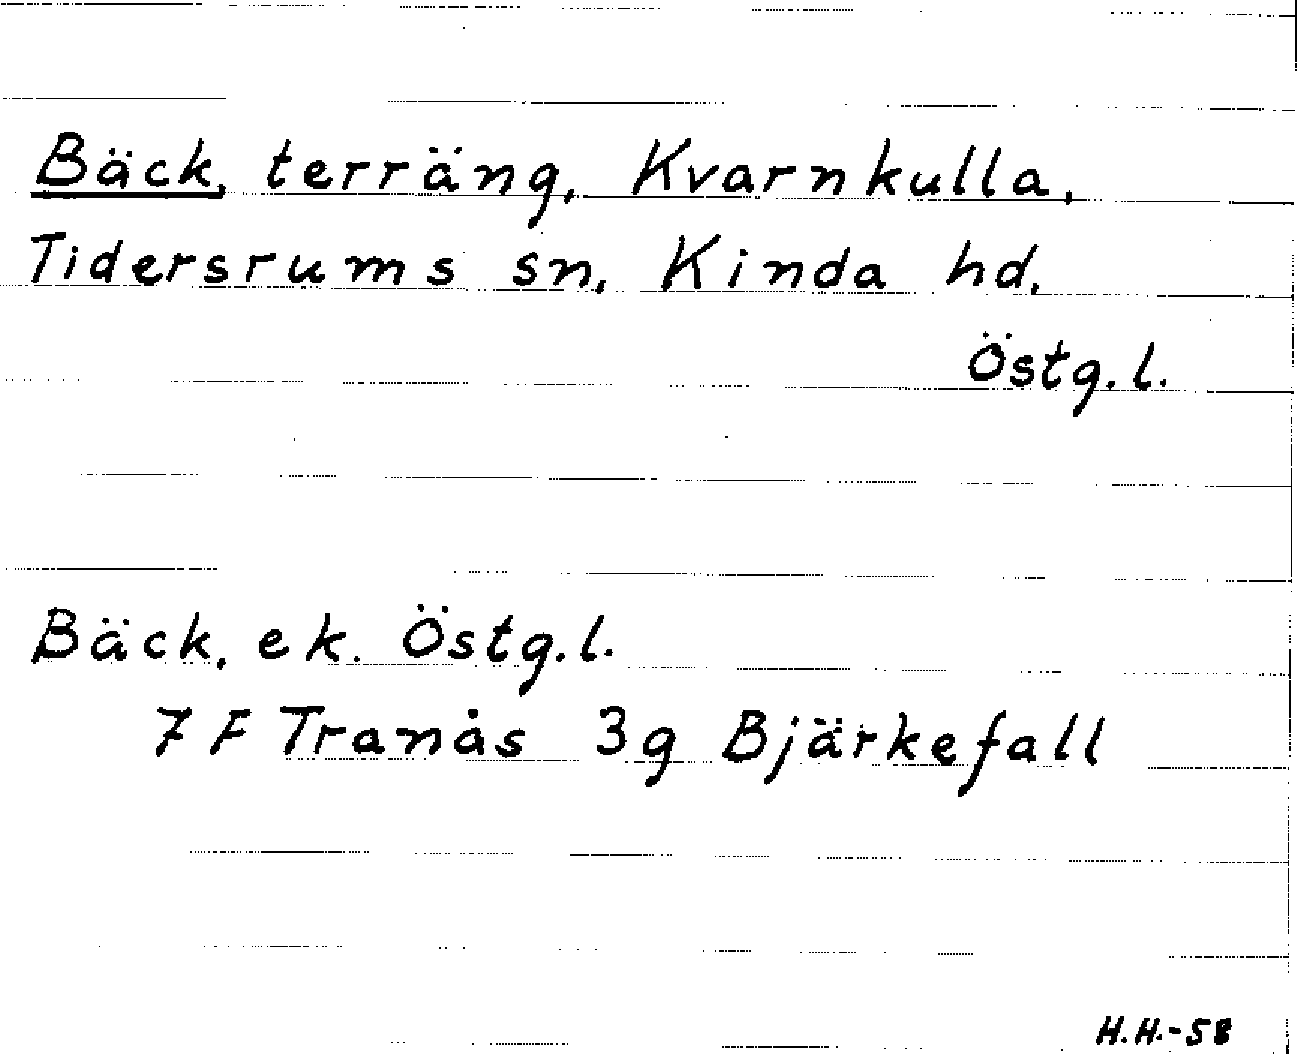 Bäck, terräng, Kvarnkulla,
Tidersrums sn, Kinda hd,
Östg.l.
Bäck, ek. Östg.l.
7 F Tranås 3g Bjärkefall
H.H.-58